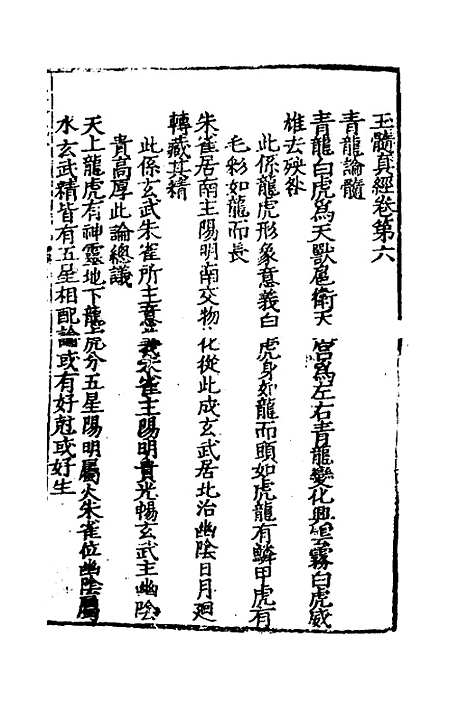 玉髓真經卷第六
青龍論髓
青龍白虎為天獸扈衛天宮為左右青龍變化興雲霧白虎威
雄去殃咎
此係龍虎形象意義白虎身如龍而頭如虎龍有鱗甲虎有
毛彩如龍而長
朱雀居南主陽明南交物化從此成玄武居北治幽陰日月廻
轉藏其精
此係玄武朱雀所主意義朱雀主陽明貴光暢玄武主幽陰
貴高厚此論總議
天上龍虎有神靈地下龍虎分五星陽明屬火朱雀位幽陰屬
水玄武精皆有五星相配論或有好尅或好生